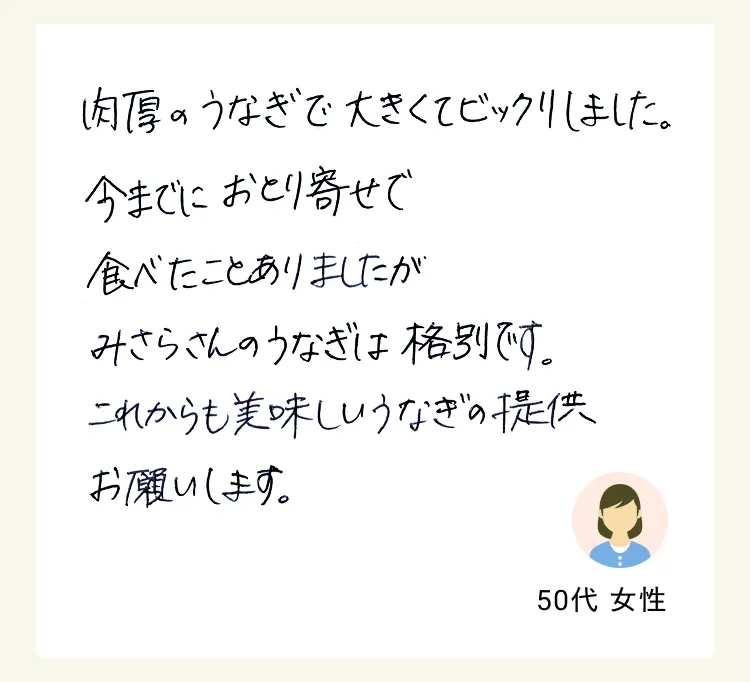 肉厚のうなぎで大きくてビックリしました。
今までにおとり寄せで
食べたことありましたが
みさらさんのうなぎは格別です。
これからも美味しいうなぎの提供
お願いします。
50代 女性